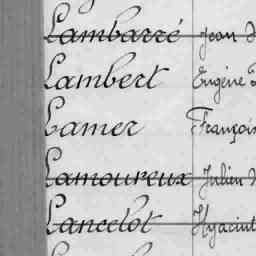 Lambarré Jean
Lambert Eugène
Lamer François
Lamoureux Julien
Lancelot Hyacint